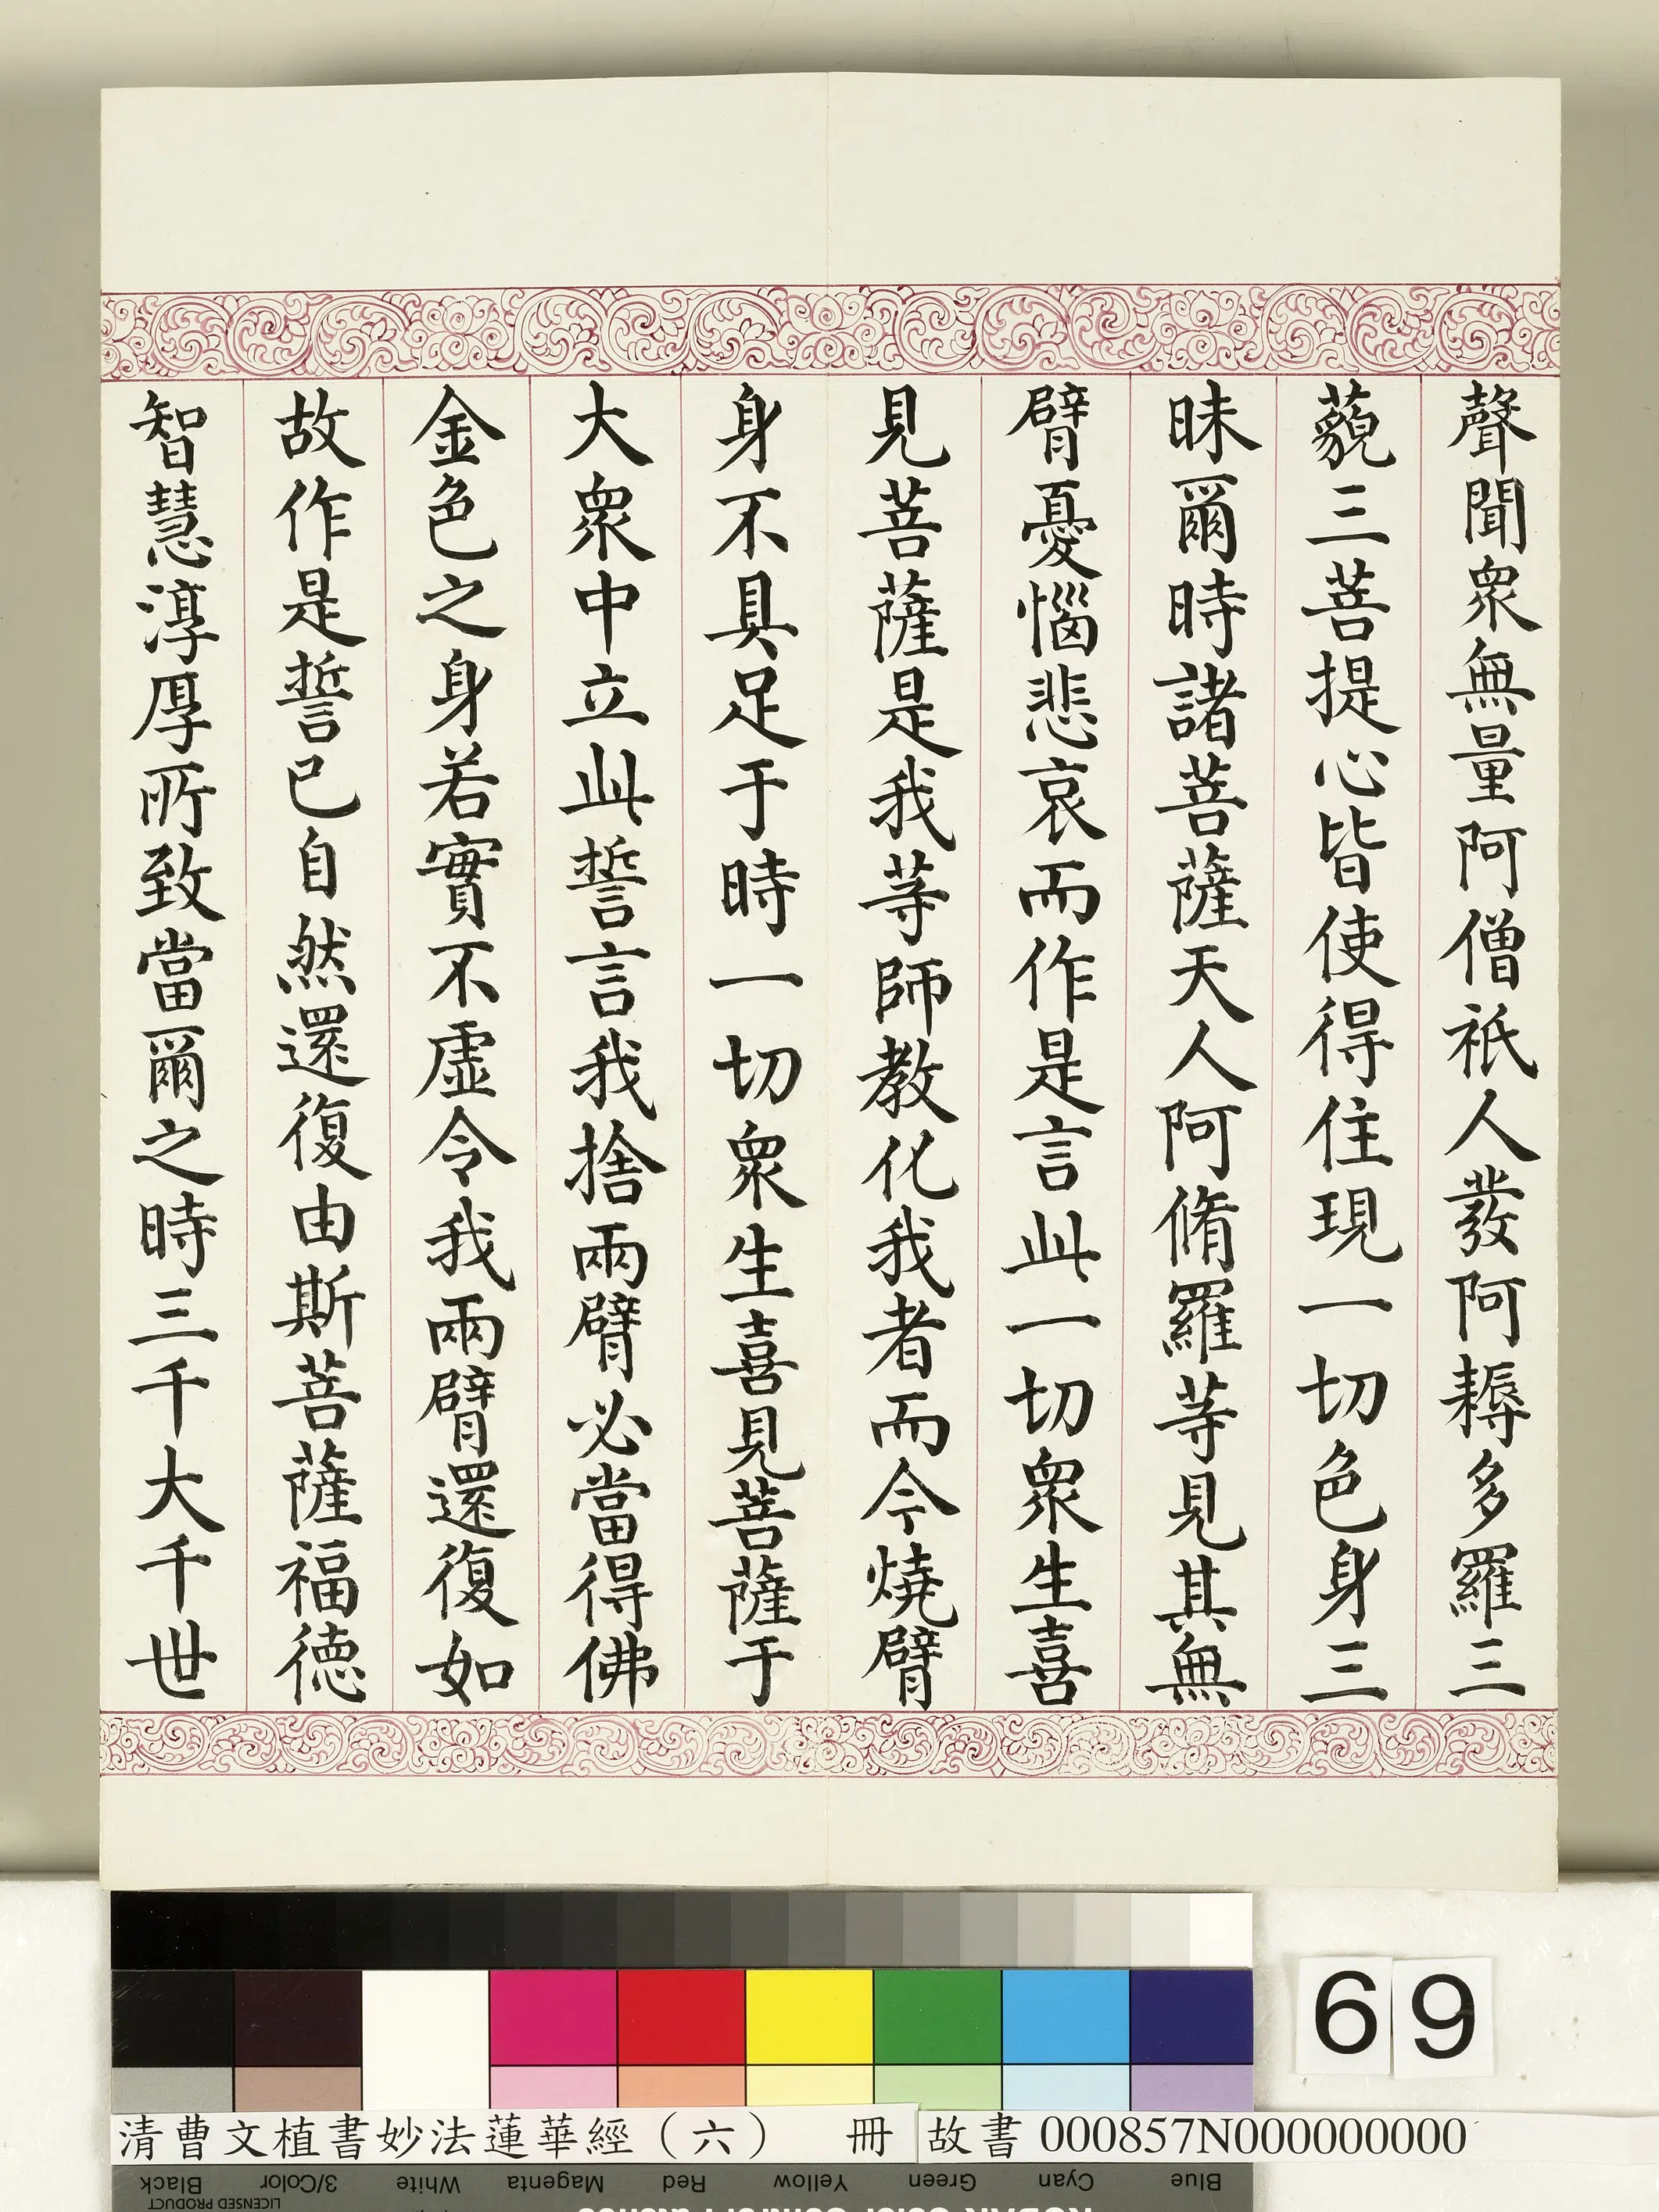 聲聞衆無量阿僧祇人發阿耨多羅三
藐三菩提心皆使得住現一切色身三
昧爾時諸菩薩天人阿脩羅等見其無
臂憂惱悲哀而作是言此一切衆生喜
見菩薩是我等師教化我者而今燒臂
身不具足于時一切衆生喜見菩薩于
大衆中立此誓言我捨兩臂必當得佛
金色之身若實不虛令我兩臂還復如
故作是誓已自然還復由斯菩薩福德
智慧淳厚所致當爾之時三千大千世
69
清曹文植書妙法蓮華經（六） 冊 故書 000857N000000000
Black 3/Color White Magenta Red Yellow Green Cyan Blue
LICENSED PRODUCT